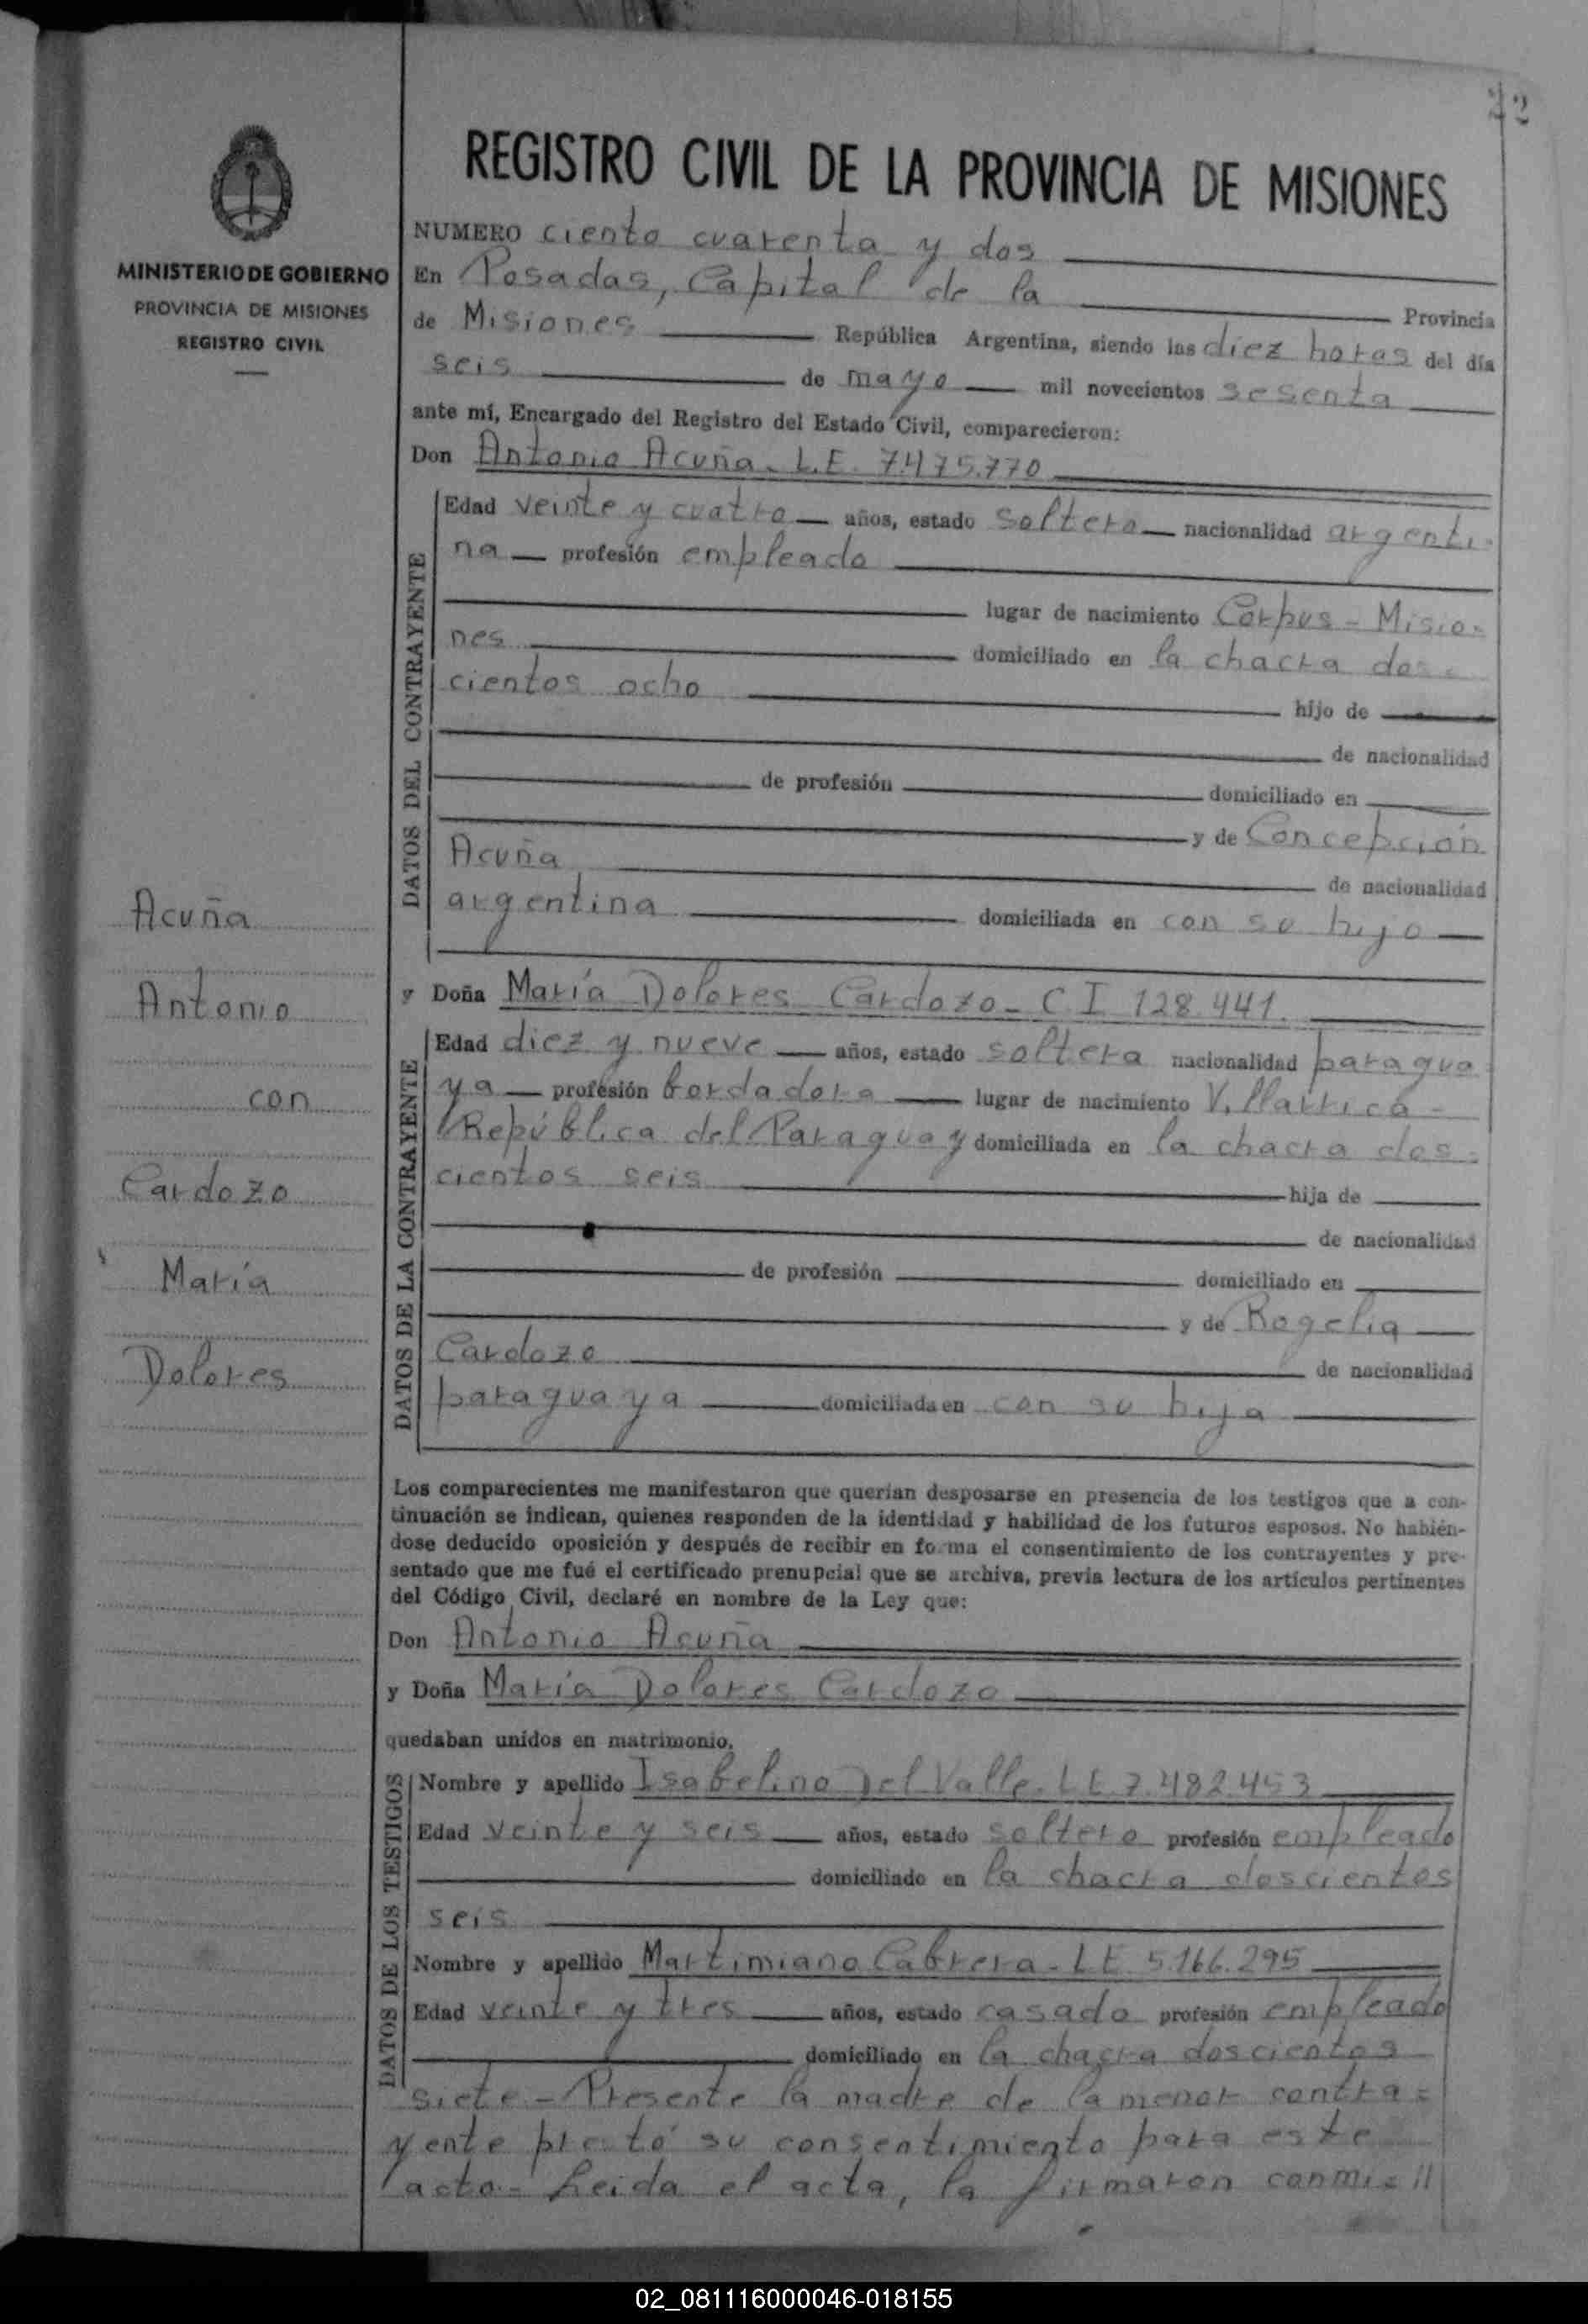 22
REGISTRO CIVIL DE LA PROVINCIA DE MISIONES
MINISTERIO DE GOBIERNO
PROVINCIA DE MISIONES
REGISTRO CIVIL
NUMERO ciento cuarenta y dos
En Posadas, Capital de la Provincia
de Misiones República Argentina, siendo las diez horas del día
seis de mayo mil novecientos sesenta
ante mí, Encargado del Registro del Estado Civil, comparecieron:
Don Antonio Acuña - L.E. 7.475.770
DATOS DEL CONTRAYENTE
Edad veinte y cuatro años, estado soltero nacionalidad argenti-
na profesión empleado
lugar de nacimiento Corpus - Misio-
nes domiciliado en la chacra dos-
cientos ocho hijo de
de nacionalidad
de profesión domiciliado en
y de Concepción
Acuña de nacionalidad
argentina domiciliada en con su hijo
y Doña María Dolores Cardozo - C I 128.441.
DATOS DE LA CONTRAYENTE
Edad diez y nueve años, estado soltera nacionalidad paragua-
ya profesión bordadora lugar de nacimiento Villarrica -
República del Paraguay domiciliada en la chacra dos-
cientos seis hija de
de nacionalidad
de profesión domiciliado en
y de Rogelia
Cardozo de nacionalidad
paraguaya domiciliada en con su hija
Acuña
Antonio
con
Cardozo
María
Dolores
Los comparecientes me manifestaron que querían desposarse en presencia de los testigos que a con-
tinuación se indican, quienes responden de la identidad y habilidad de los futuros esposos. No habién-
dose deducido oposición y después de recibir en forma el consentimiento de los contrayentes y pre-
sentado que me fué el certificado prenupcial que se archiva, previa lectura de los artículos pertinentes
del Código Civil, declaré en nombre de la Ley que:
Don Antonio Acuña
y Doña María Dolores Cardozo
quedaban unidos en matrimonio.
DATOS DE LOS TESTIGOS
Nombre y apellido Isabelino Del Valle - L E 7.482.453
Edad veinte y seis años, estado soltero profesión empleado
domiciliado en la chacra doscientos
seis
Nombre y apellido Martimiano Cabrera - L E 5.166.295
Edad veinte y tres años, estado casado profesión empleado
domiciliado en la chacra doscientos
siete - Presente la madre de la menor contra=
yente prestó su consentimiento para este
acto - Leida el acta, la firmaron conmi= //
02_081116000046-018155